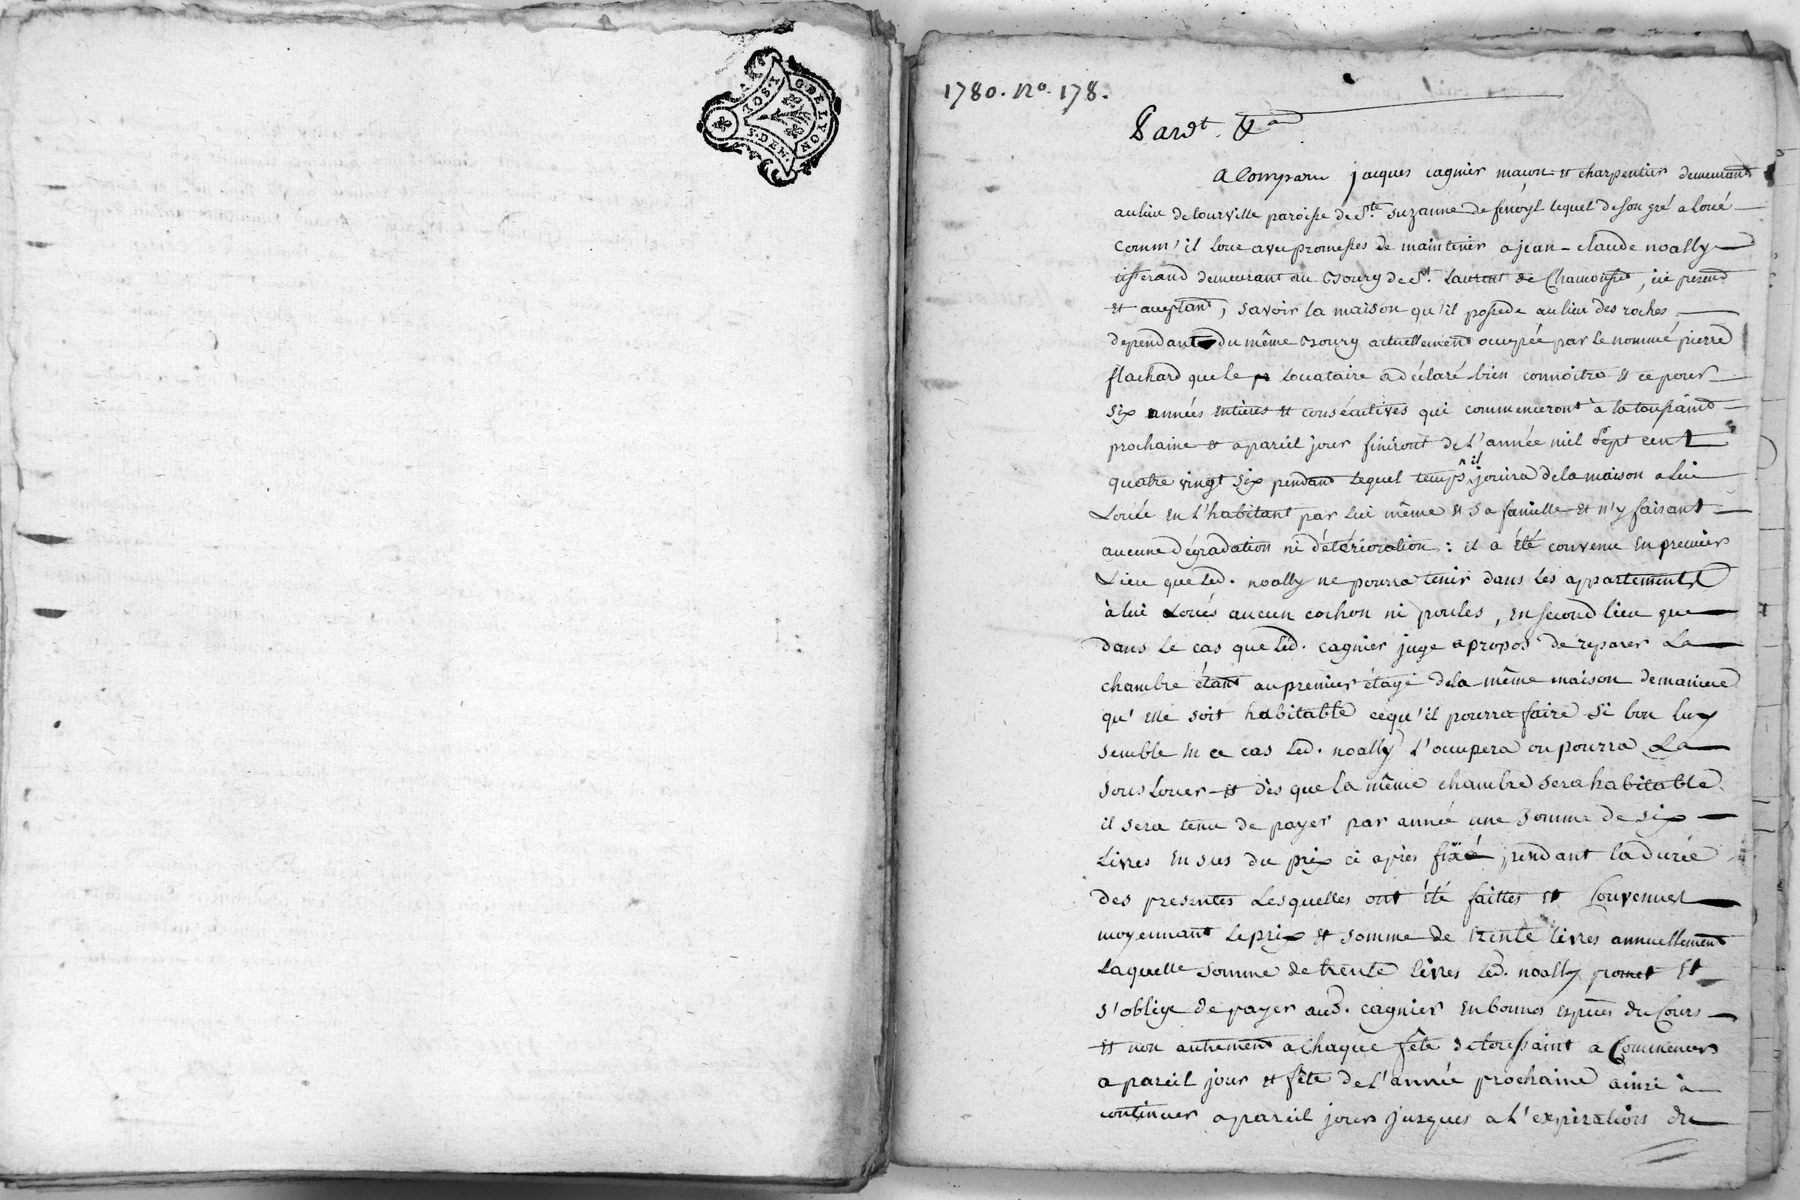 G. DE LYON
10S.4
S.DEN.
1780. No. 178.
Pardt.
a Comparu jacques cagnier maçon et charpentier demeurant
au lieu de tourville paroisse de Ste. suzanne de fenoyl lequel de son gré a loué
comm' il loue avec promesses de maintenir a jean-claude noally
tisserand demeurant au Bourg de St. Laurent de Chamousset, ici present
et acceptant, savoir la maison qu'il possede au lieu des roches
dependante du même Bourg actuellement occupée par le nommé pierre
flachard que le locataire a déclaré bien connoitre et ce pour
six années entieres et consécutives qui commenceront à la toussaint
prochaine et a pareil jour finiront de l'année mil sept cent
quatre vingt six pendant lequel temps il jouira de la maison a lui
Louée en l'habitant par lui même et sa famille et n'y faisant
aucune dégradation ni détérioration : il a été convenu en premier
Lieu que led. noally ne pourra tenir dans les appartements
à lui Loués aucun cochon ni poules, en second lieu que
dans le cas que led. cagnier juge apropos de reparer la
chambre étant au premier étage de la même maison de maniere
qu'elle soit habitable ce qu'il pourra faire si bon luy
semble en ce cas led. noally l'occupera ou pourra la
sous louer et dès que la même chambre sera habitable
il sera tenu de payer par année une somme de six
Livres en sus du prix ci apres fixé pendant la durée
des presentes lesquelles ont été faittes et Convenues
moyennant le prix et somme de trente livres annuellement
Laquelle somme de trente livres led. noally promet et
s'oblige de payer aud. cagnier en bonnes espèces du Cours
et non autrement a chaque fête de toussaint a Commencer
a pareil jour et fête de l'année prochaine ainsi à
continuer a pareil jour jusques a l'expiration du